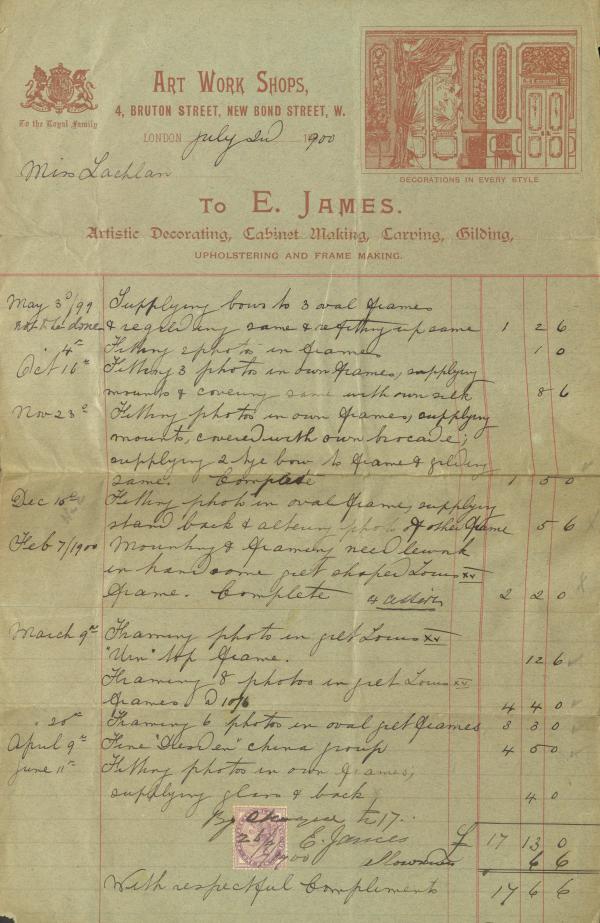 To the Royal Family
ART WORK SHOPS,
4, BRUTON STREET, NEW BOND STREET, W.
LONDON July 2nd 1900
DECORATIONS IN EVERY STYLE
Miss Lachlan
TO E. JAMES.
Artistic Decorating, Cabinet Making, Carving, Gilding,
UPHOLSTERING AND FRAME MAKING.
May 3d/99 Supplying bows to 3 oval frames
not to be done & regilding same & refitting up same 1 2 6
" 4th Fitting 2 photos in frames 1 0
Oct 16th Fitting 3 photos in own frames, supplying
mounts & covering same with own silk 8 6
Nov 23d Fitting photos in own frames, supplying
mounts, covered with own brocade;
supplying 2 tye bow to frame & gilding
same. Complete 1 5 0
Dec 16th Fitting photo in oval frame, supplying
stand back & altering photo of other frame 5 6
Feb 7/1900 Mounting & framing needlework
in handsome gilt shaped Louis XV
frame. Complete 2 2 0
March 9th Framing photo in gilt Louis XV
"Urn" top frame. 12 6
Framing 8 photos in gilt Louis XV
frames @ 10/6 4 4 0
" 20th Framing 6 photos in oval gilt frames 3 3 0
April 9th Fine "Dresden" china group 4 5 0
June 11th Fitting photos in own frames,
supplying glass & back 4 0
By cheque to 17..
E. James £ 17 13 0
1900 6 6
With respectful Compliments 17 6 6